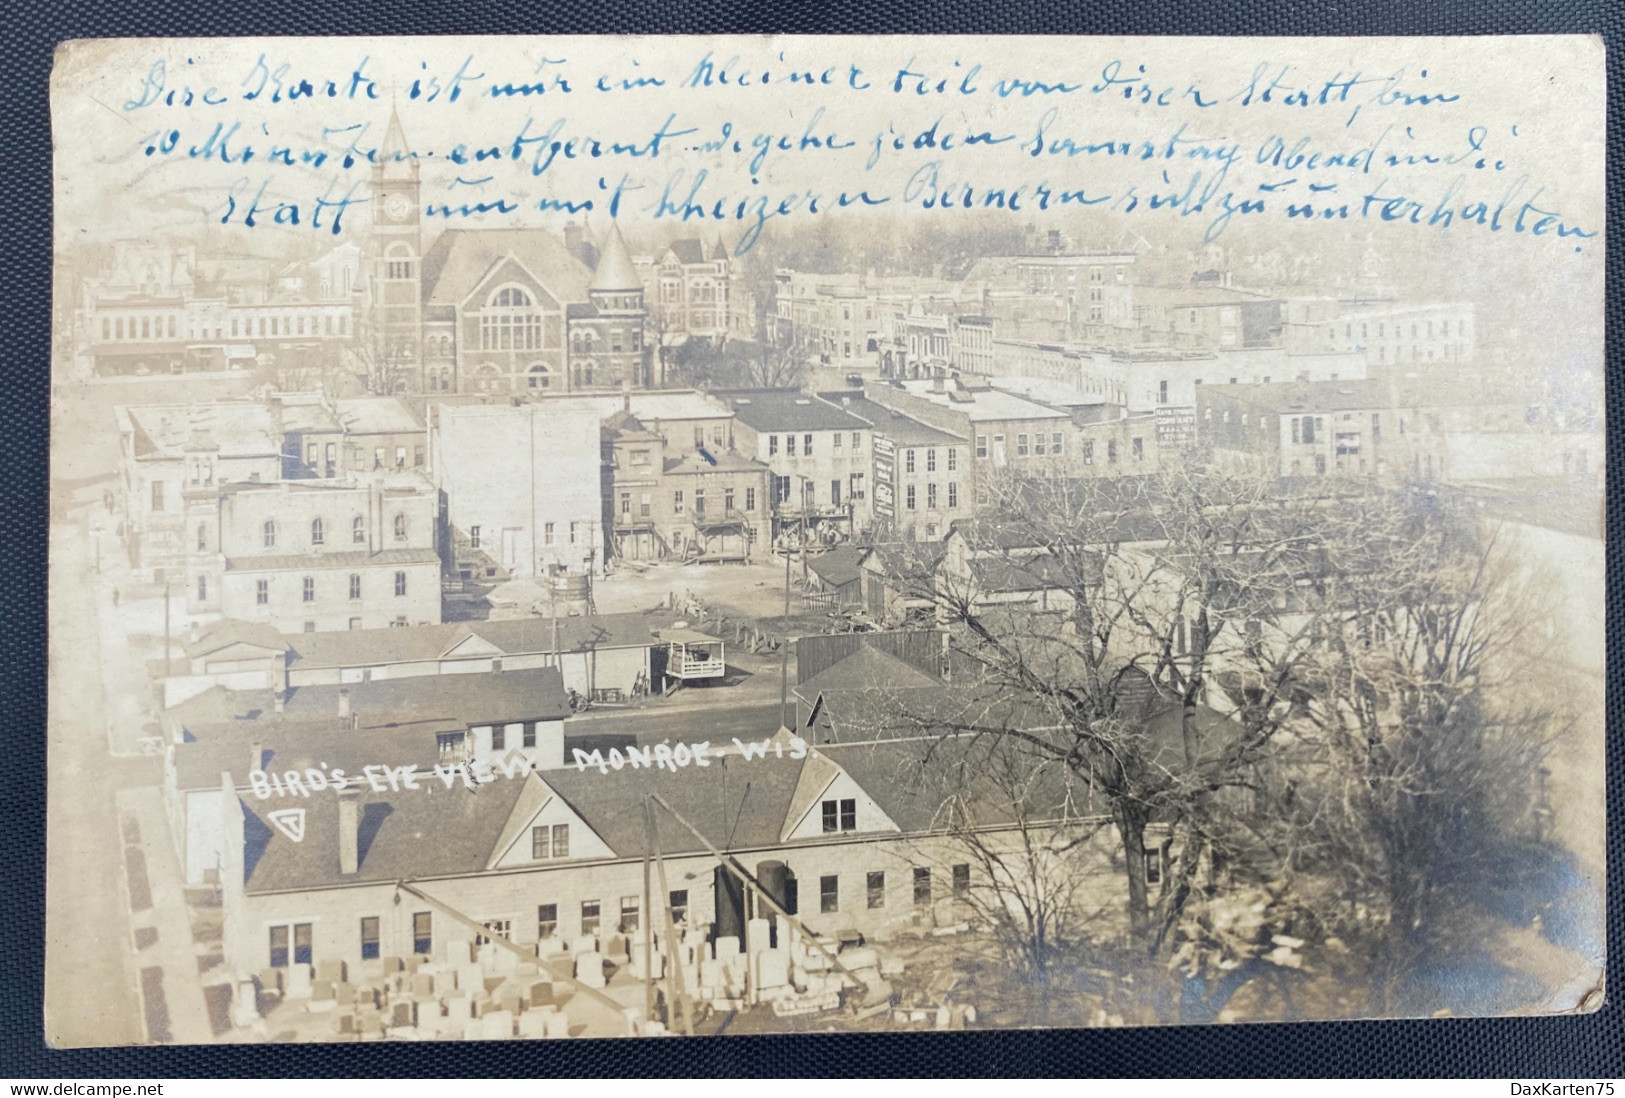 Dise Karte ist nur ein kleiner teil von diser Statt, bin
10 Minuten entfernt u gehe jeden Samstag Abend in di
Statt um mit Schweizern Bernern sich zu unterhalten.
BIRD'S EYE VIEW MONROE. WIS.
T
DaxKarten75
www.delcampe.net